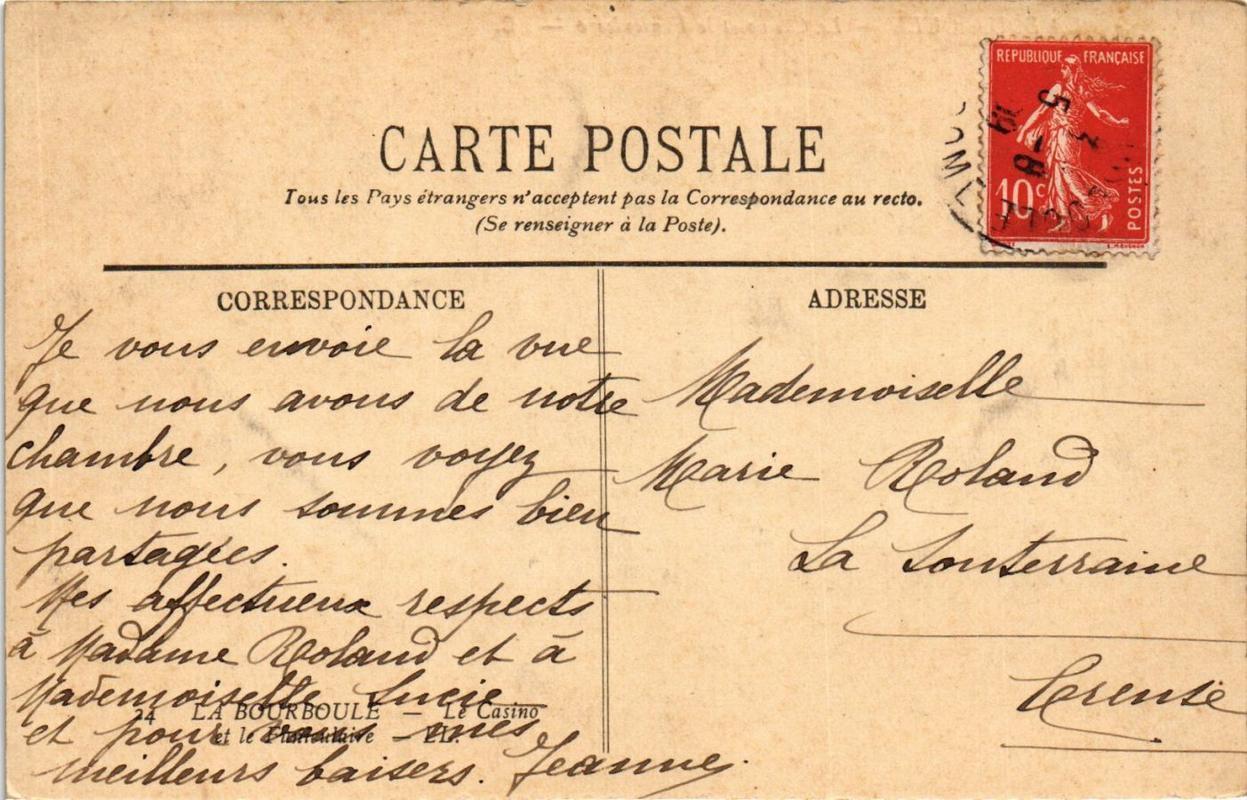 RÉPUBLIQUE FRANÇAISE
10c
POSTES
CARTE POSTALE
Tous les Pays étrangers n'acceptent pas la Correspondance au recto.
(Se renseigner à la Poste).
CORRESPONDANCE
Je vous envoie la vue
que nous avons de notre
chambre, vous voyez
que nous sommes bien
partagées.
Mes affectueux respects
à Madame Roland et à
Mademoiselle Lucie
et pour vous mes
meilleurs baisers. Jeanne.
24 LA BOURBOULE — Le Casino
et le Funiculaire — LL.
ADRESSE
Mademoiselle
Marie Roland
La Souterraine
Creuse